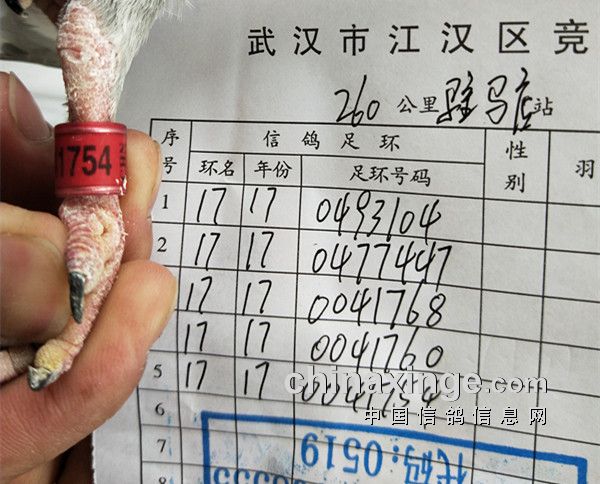 武汉市江汉区竞
260 公里 驻马店 站
序号 信鸽足环 性别 羽
环名 年份 足环号码
1 17 17 0493104
2 17 17 0477447
17 17 0041768
17 17 0041760
5 17 17 0041754
6
7
8
1754
代码:0519
chinaxinge.com
中国信鸽信息网